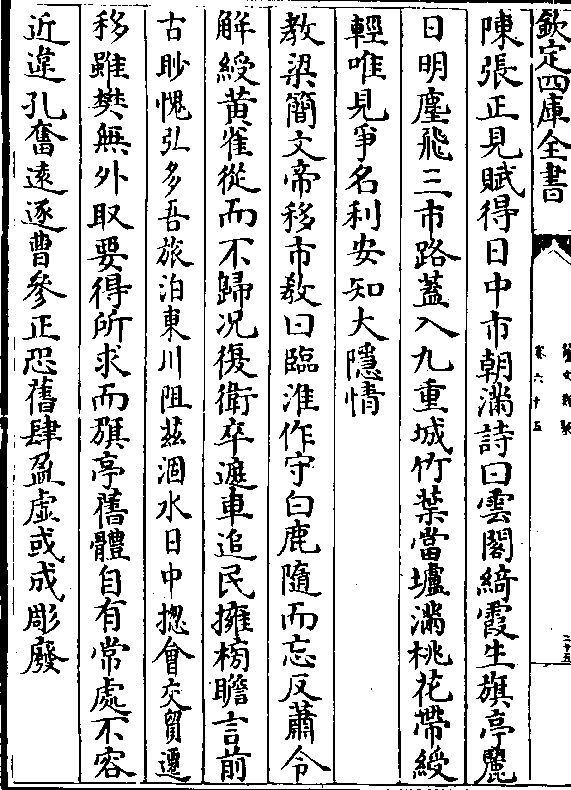 欽定四庫全書
卷六十五
陳張正見賦得日中市朝滿詩曰雲閣綺霞生旗亭麗
日明塵飛三市路蓋入九重城竹葉當壚滿桃花帶綬
輕唯見爭名利安知大隱情
教梁簡文帝移市敎曰臨淮作守白鹿隨而忘反蕭令
解綬黄雀從而不歸况復衛卒遮車追民擁榜瞻言前
古眇愧弘多吾旅泊東川阻兹涸水日中揔會交貿遷
移雖樊無外取要得所求而旗亭舊體自有常處不容
近違孔奮遠逐曹參正恐舊肆盈虛或成彫廢